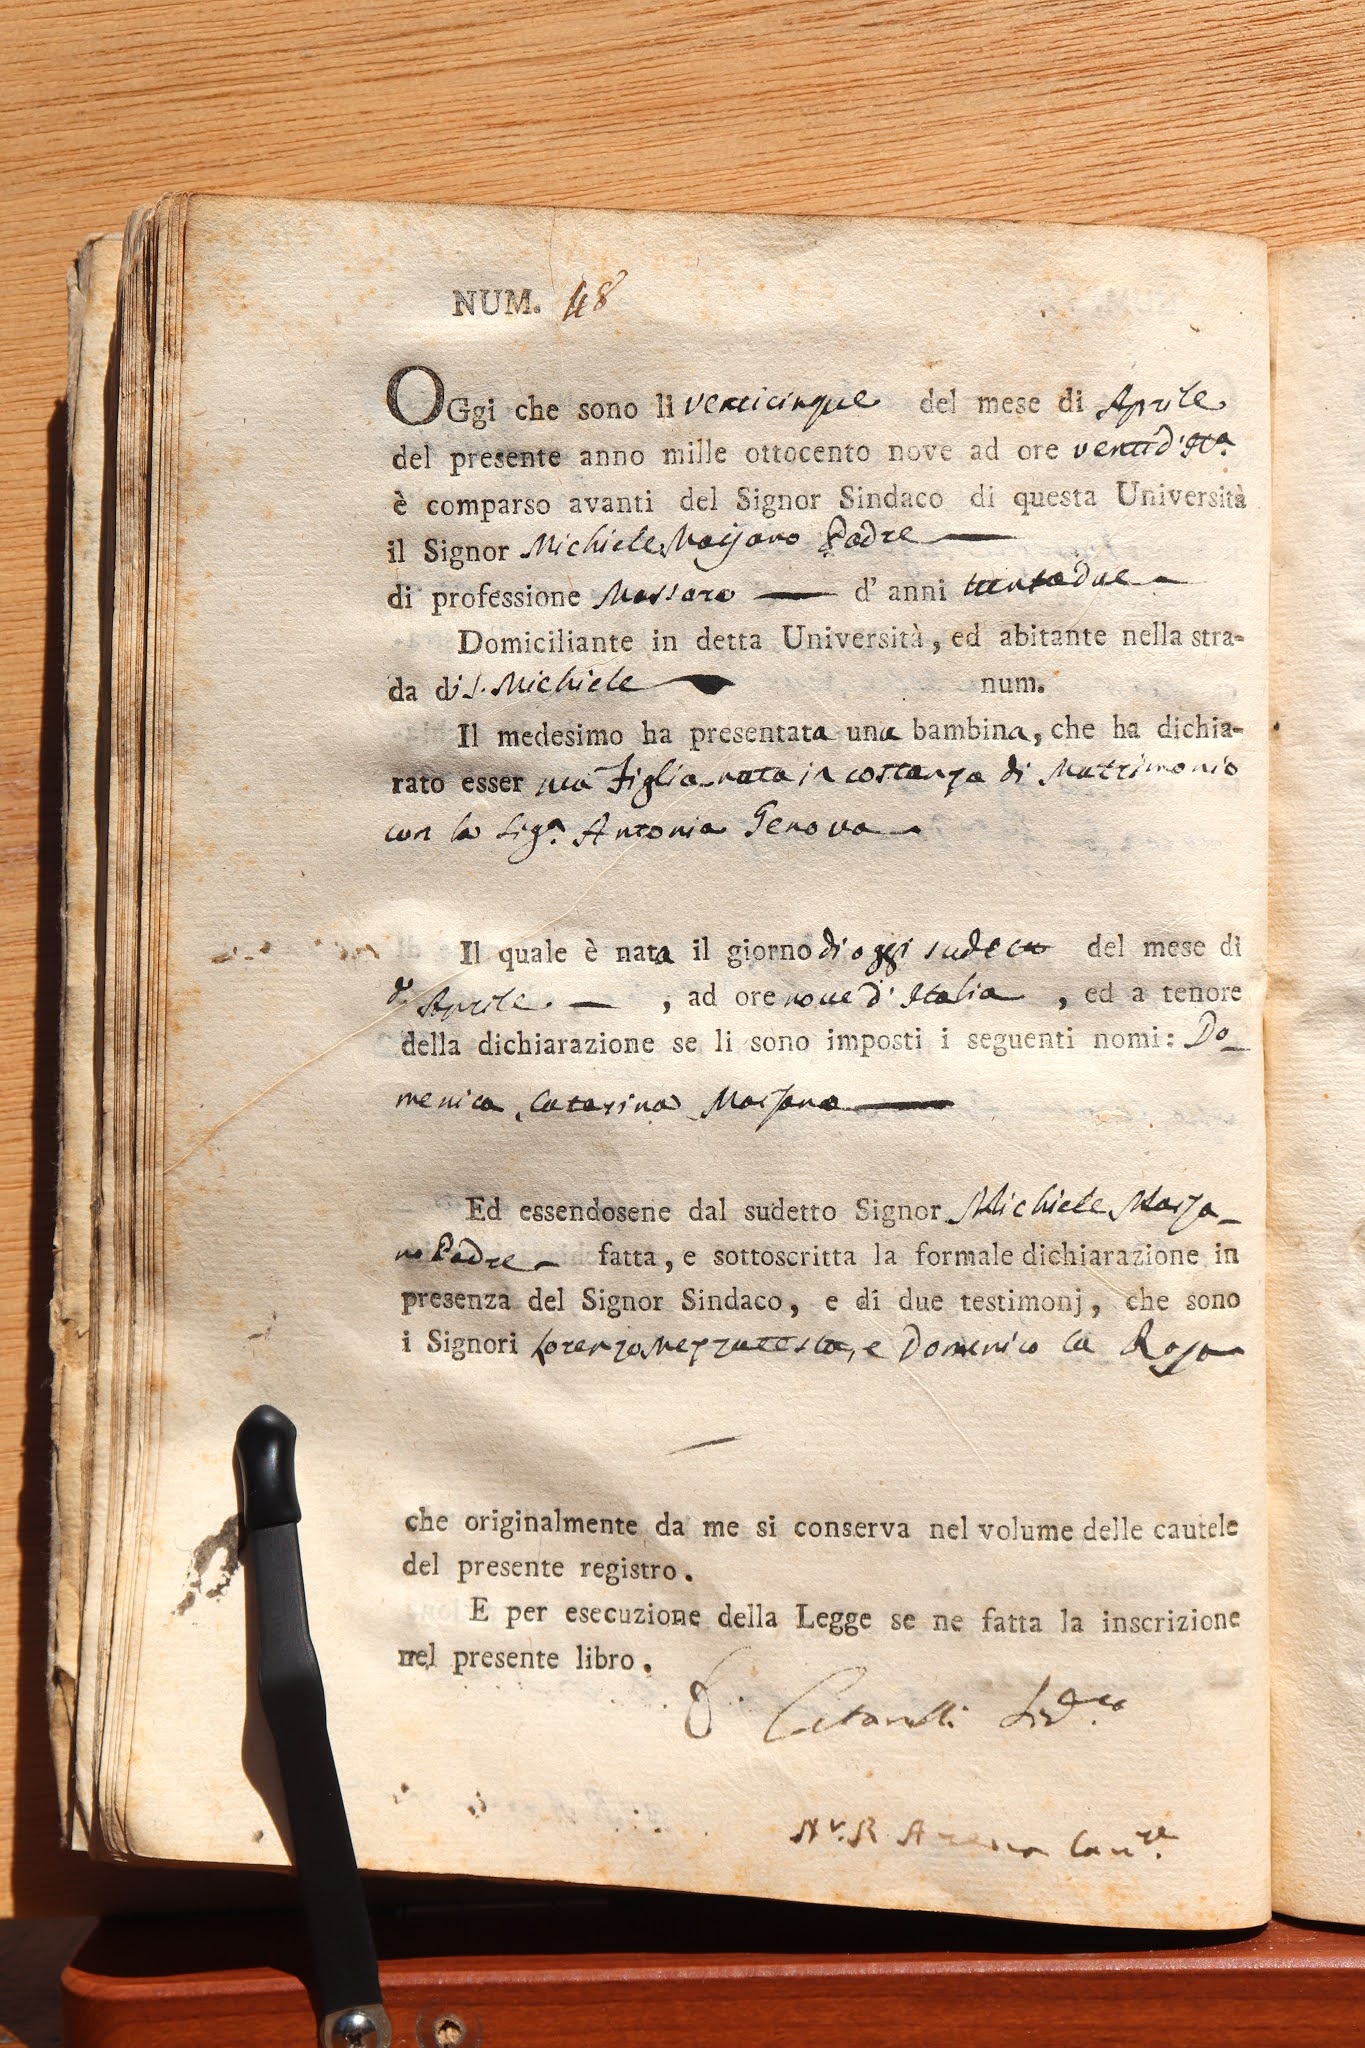 NUM. 48
OGgi che sono li venticinque del mese di Aprile
del presente anno mille ottocento nove ad ore venti d'Ita
è comparso avanti del Signor Sindaco di questa Università
il Signor Michiele Marzano Padre
di professione Massaro d' anni trentadue
Domiciliante in detta Università, ed abitante nella stra-
da di S. Michiele num.
Il medesimo ha presentata una bambina, che ha dichia-
rato esser sua Figlia nata in costanza di Matrimonio
con la Sig.a Antonia Genova
Il quale è nata il giorno di oggi sudetto del mese di
d. Aprile , ad ore nove d' Italia , ed a tenore
della dichiarazione se li sono imposti i seguenti nomi: Do-
menica Catarina Marzano
Ed essendosene dal sudetto Signor Michiele Marza-
no Padre fatta, e sottoscritta la formale dichiarazione in
presenza del Signor Sindaco, e di due testimonj, che sono
i Signori Lorenzo Mezzatesta, e Domenico la Rosa
che originalmente da me si conserva nel volume delle cautele
del presente registro.
E per esecuzione della Legge se ne fatta la inscrizione
nel presente libro.
Sind.co
Arena Can.re